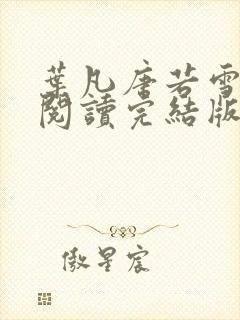 葉凡唐若雪
閱讀完結版
傲星宸